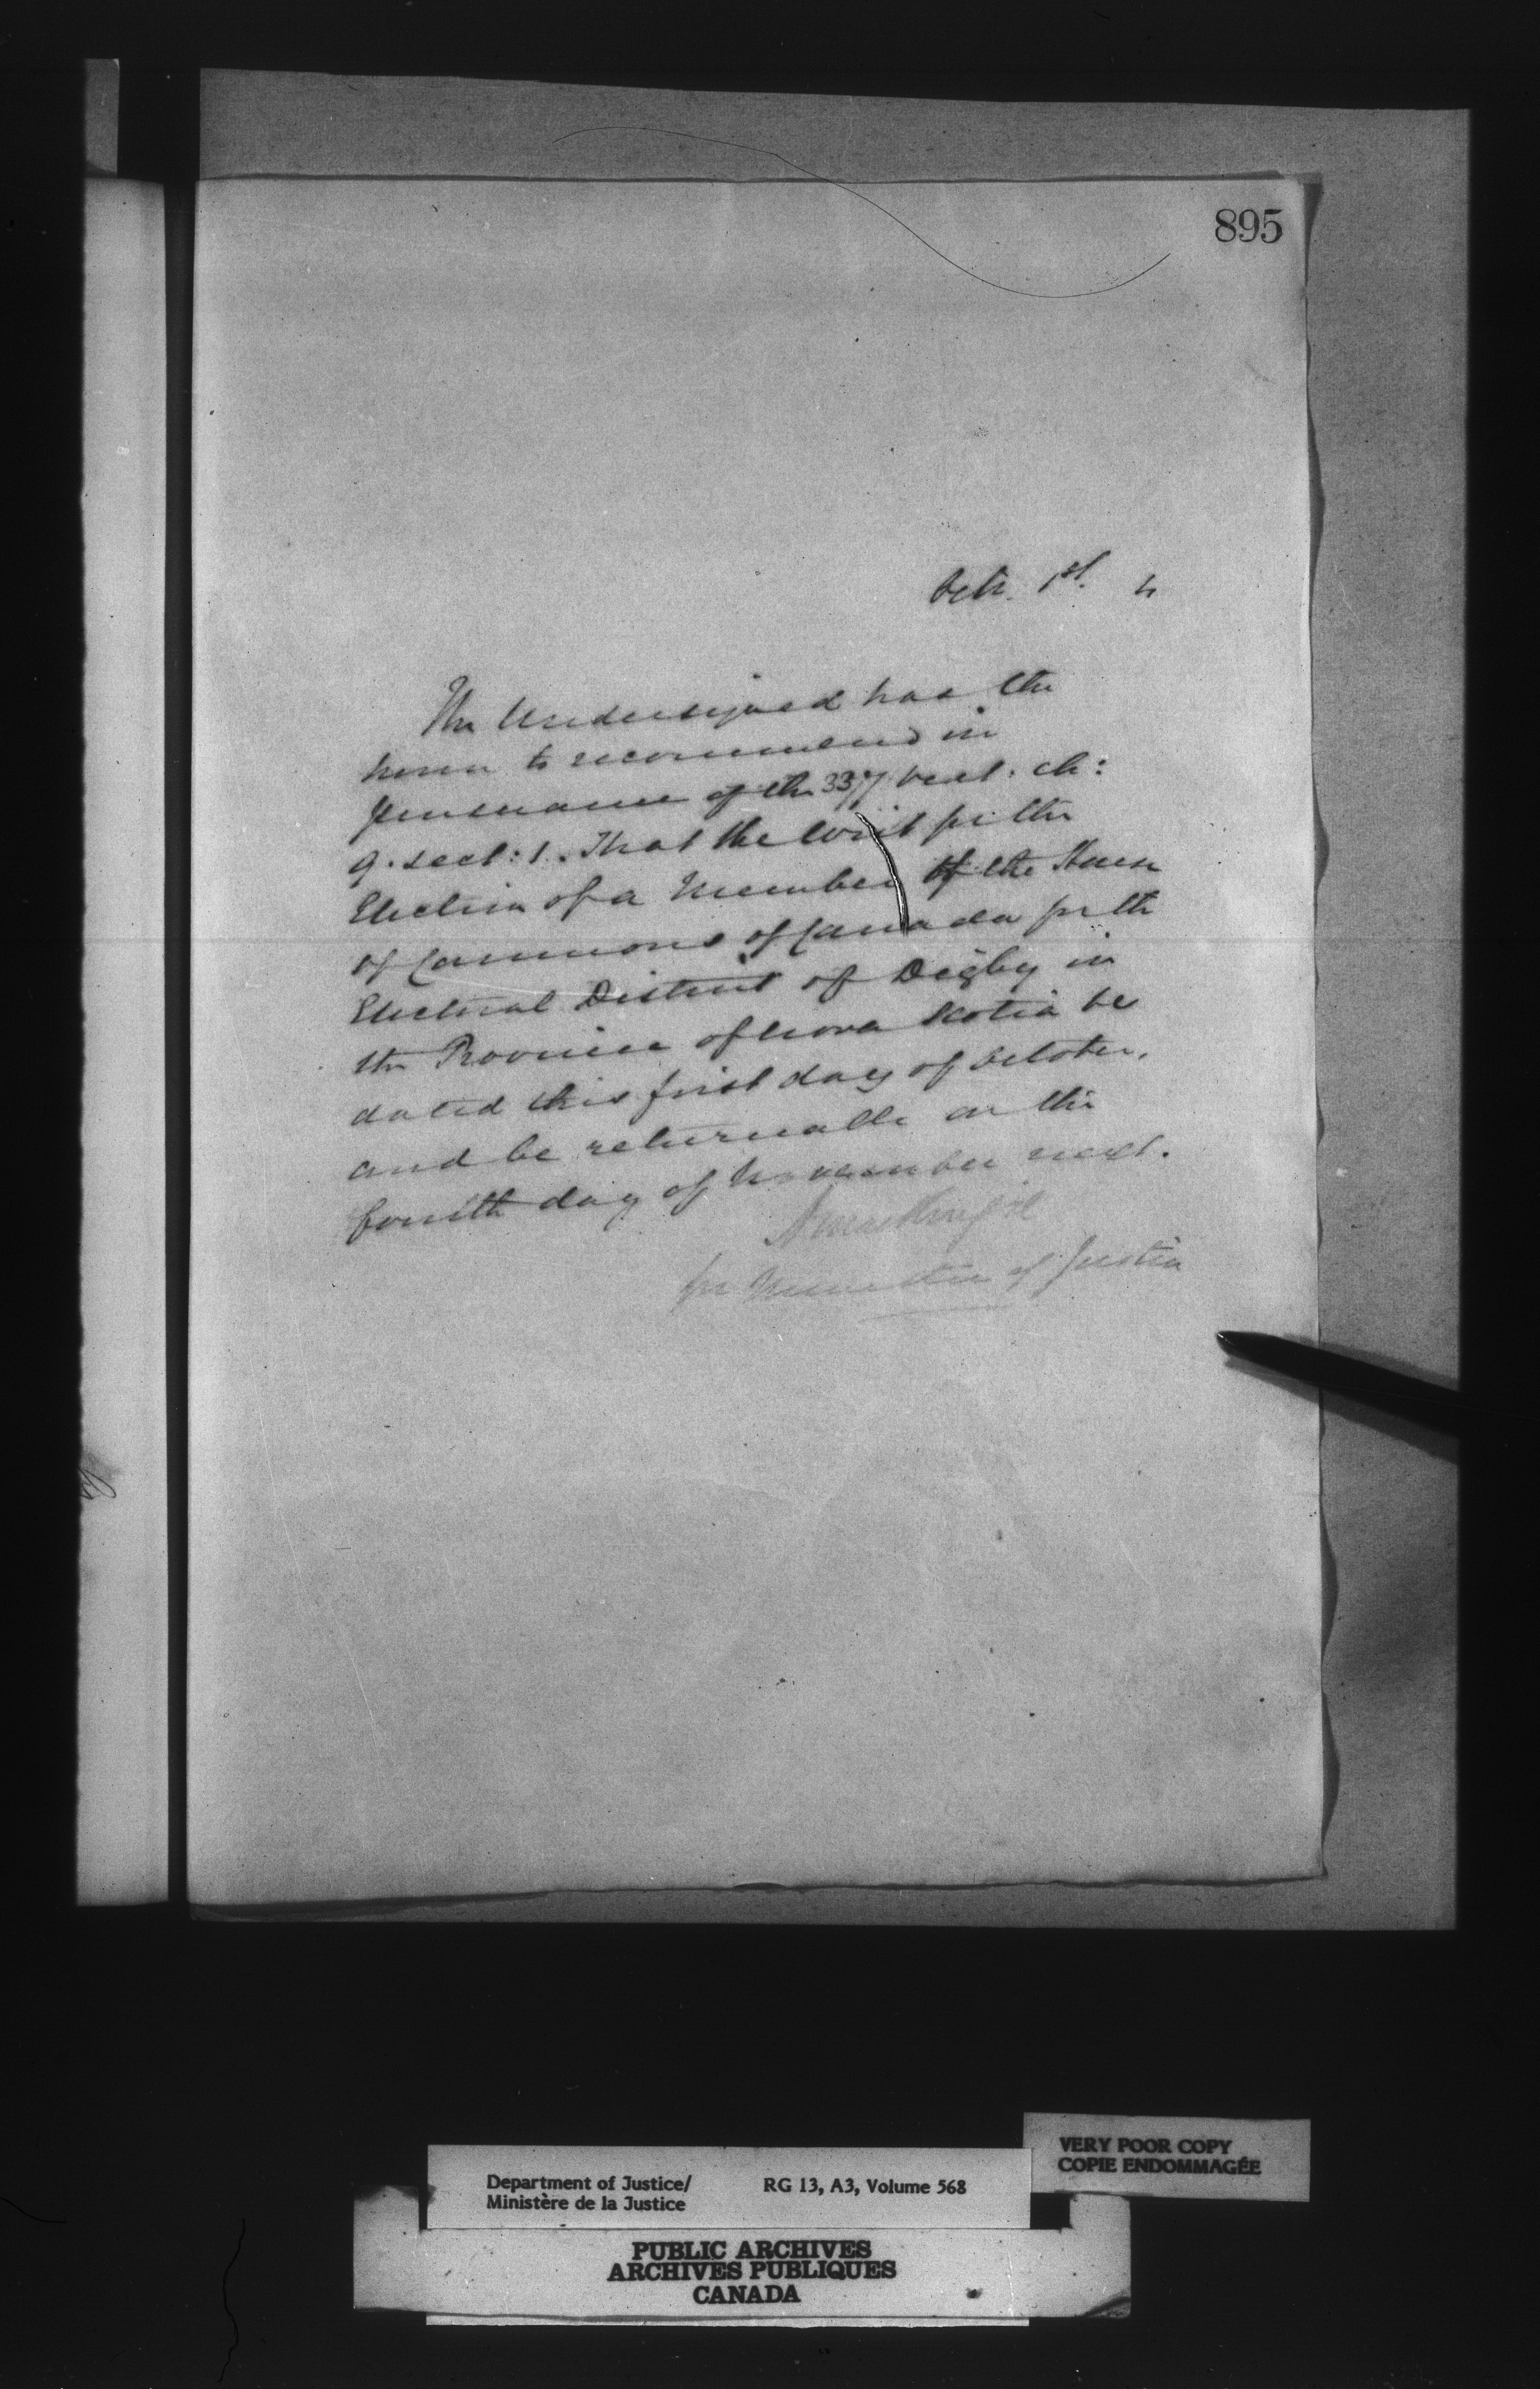 895
Octr. 1st. 4
The Undersigned has the
honor to recommend in
pursuance of the 37 Vict. ch:
9. sect: 1. That the Writ for the
Election of a Member of the House
of Commons of Canada for the
Electoral District of Digby in
the Province of Nova Scotia be
dated this first day of October,
and be returnable on the
fourth day of November next.
for Minister of Justice
VERY POOR COPY
COPIE ENDOMMAGÉE
Department of Justice/ RG 13, A3, Volume 568
Ministère de la Justice
PUBLIC ARCHIVES
ARCHIVES PUBLIQUES
CANADA